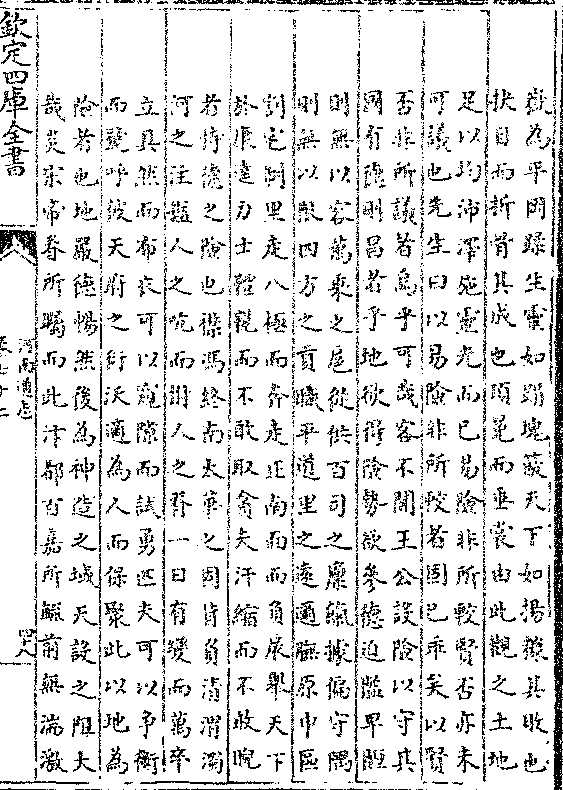 嶽為平岡蹂生靈如蹋塊簸天下如揚糠其敗也
抉目而折骨其成也頂冕而垂裳由此觀之土地
足以均沛澤施靈光而已易險非所較賢否亦未
可議也先生曰以易險非所較者固已乖矣以賢
否非所議者烏乎可哉客不聞王公設險以守其
國有德則昌若乎地欲得險勢欲參德迫隘卑陋
則無以容萬乘之扈從供百司之廩餼據偏守隅
則無以聚四方之貢職平道里之遠邇膴原中區
割宅制里走八極而奔走正南面而負扆舉天下
於康逵力士䠶覬而不敢取貪夫汗縮而不敢睨
若恃德之險也襟馮終南太華之固背負清渭濁
河之注扼人之吭而拊人之脊一日有變而萬卒
立具然而布衣可以窺隙而試勇匹夫可以爭衡
而號呼彼天府之衍沃適為人而保聚此以地為
險者也地嚴德暢然後為神造之域天設之阻大
哉炎宋帝眷所矚而此汴都百嘉所毓前無湍激
欽定四庫全書
河南通志
卷七十二